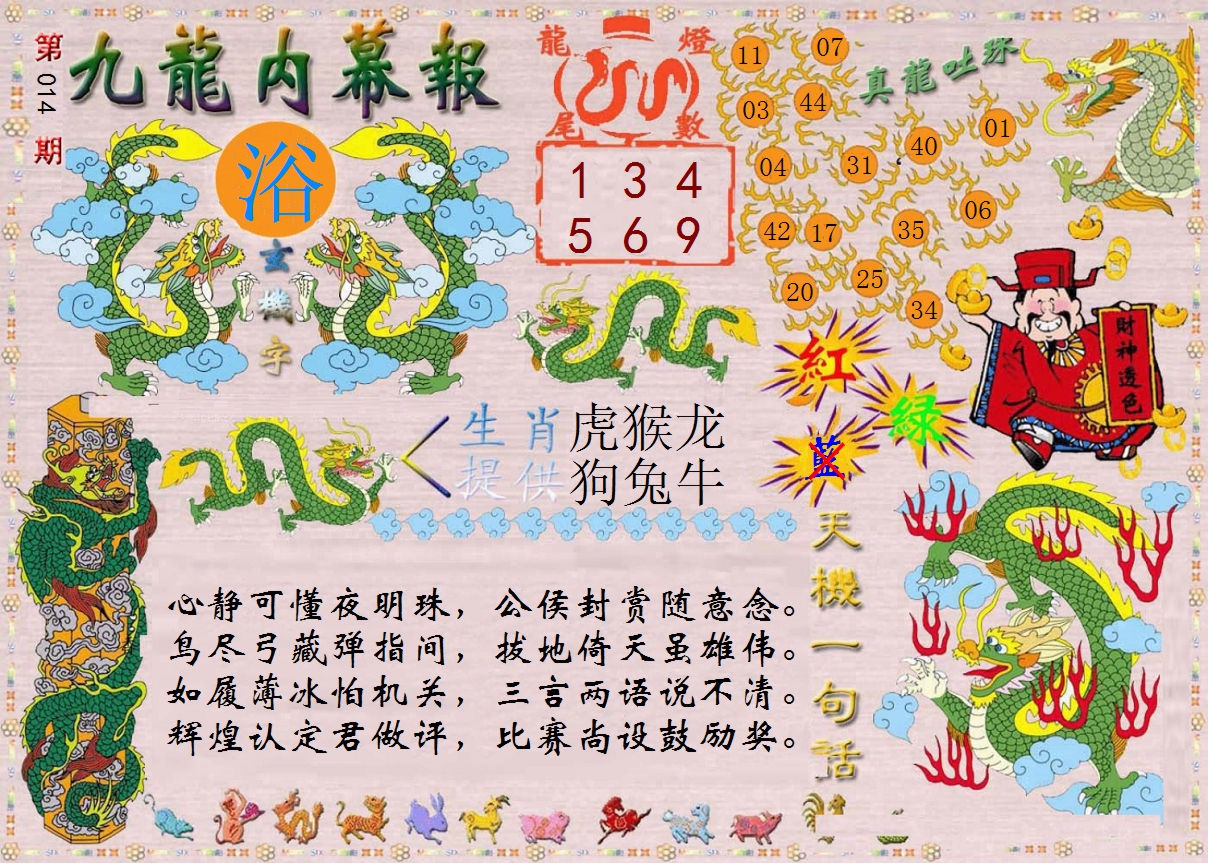 第014期
九龍内幕報
浴
玄機字
龍燈
尾數
1 3 4
5 6 9
真龍吐珠
11 07
03 44
04 31 40 01
42 17 35 06
20 25 34
財神透色
紅
緑
藍
生肖 虎猴龙
提供 狗兔牛
天機一句話
心静可懂夜明珠，公侯封赏随意念。
鸟尽弓藏弹指间，拔地倚天虽雄伟。
如履薄冰怕机关，三言两语说不清。
辉煌认定君做评，比赛尚设鼓励奖。